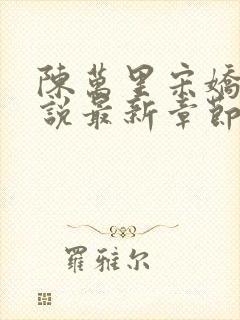 陳萬里宋嬌
說最新章節
羅雅尔